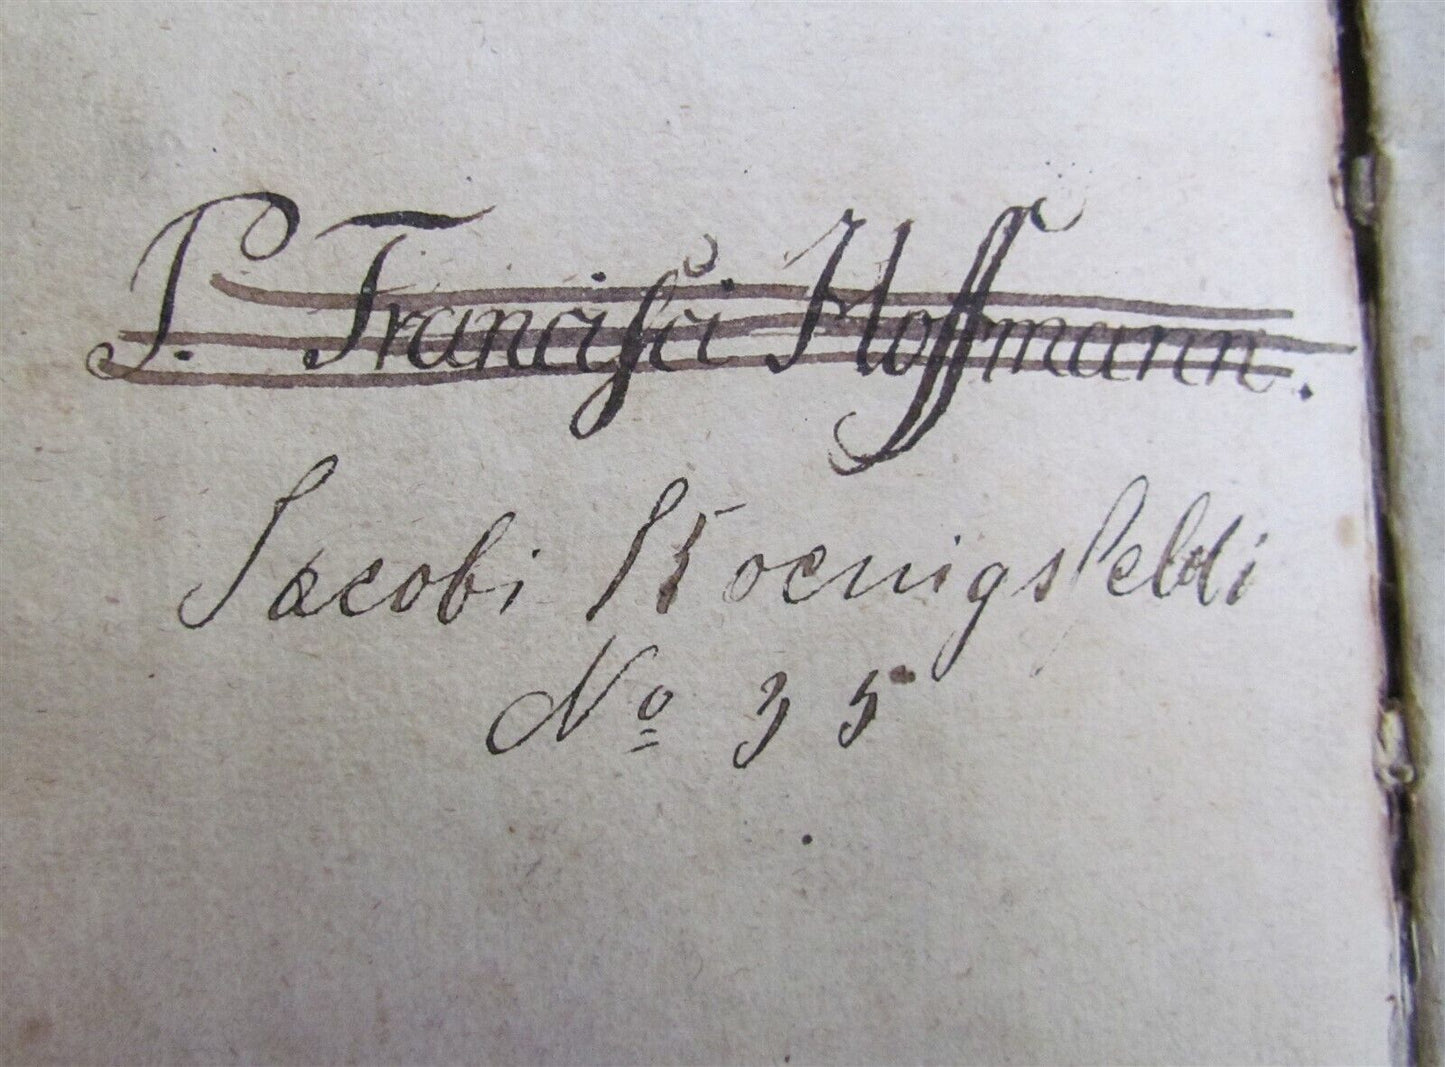 P. Francisci Hoffmann.
Jacobi Koenigsfeldi
No 35